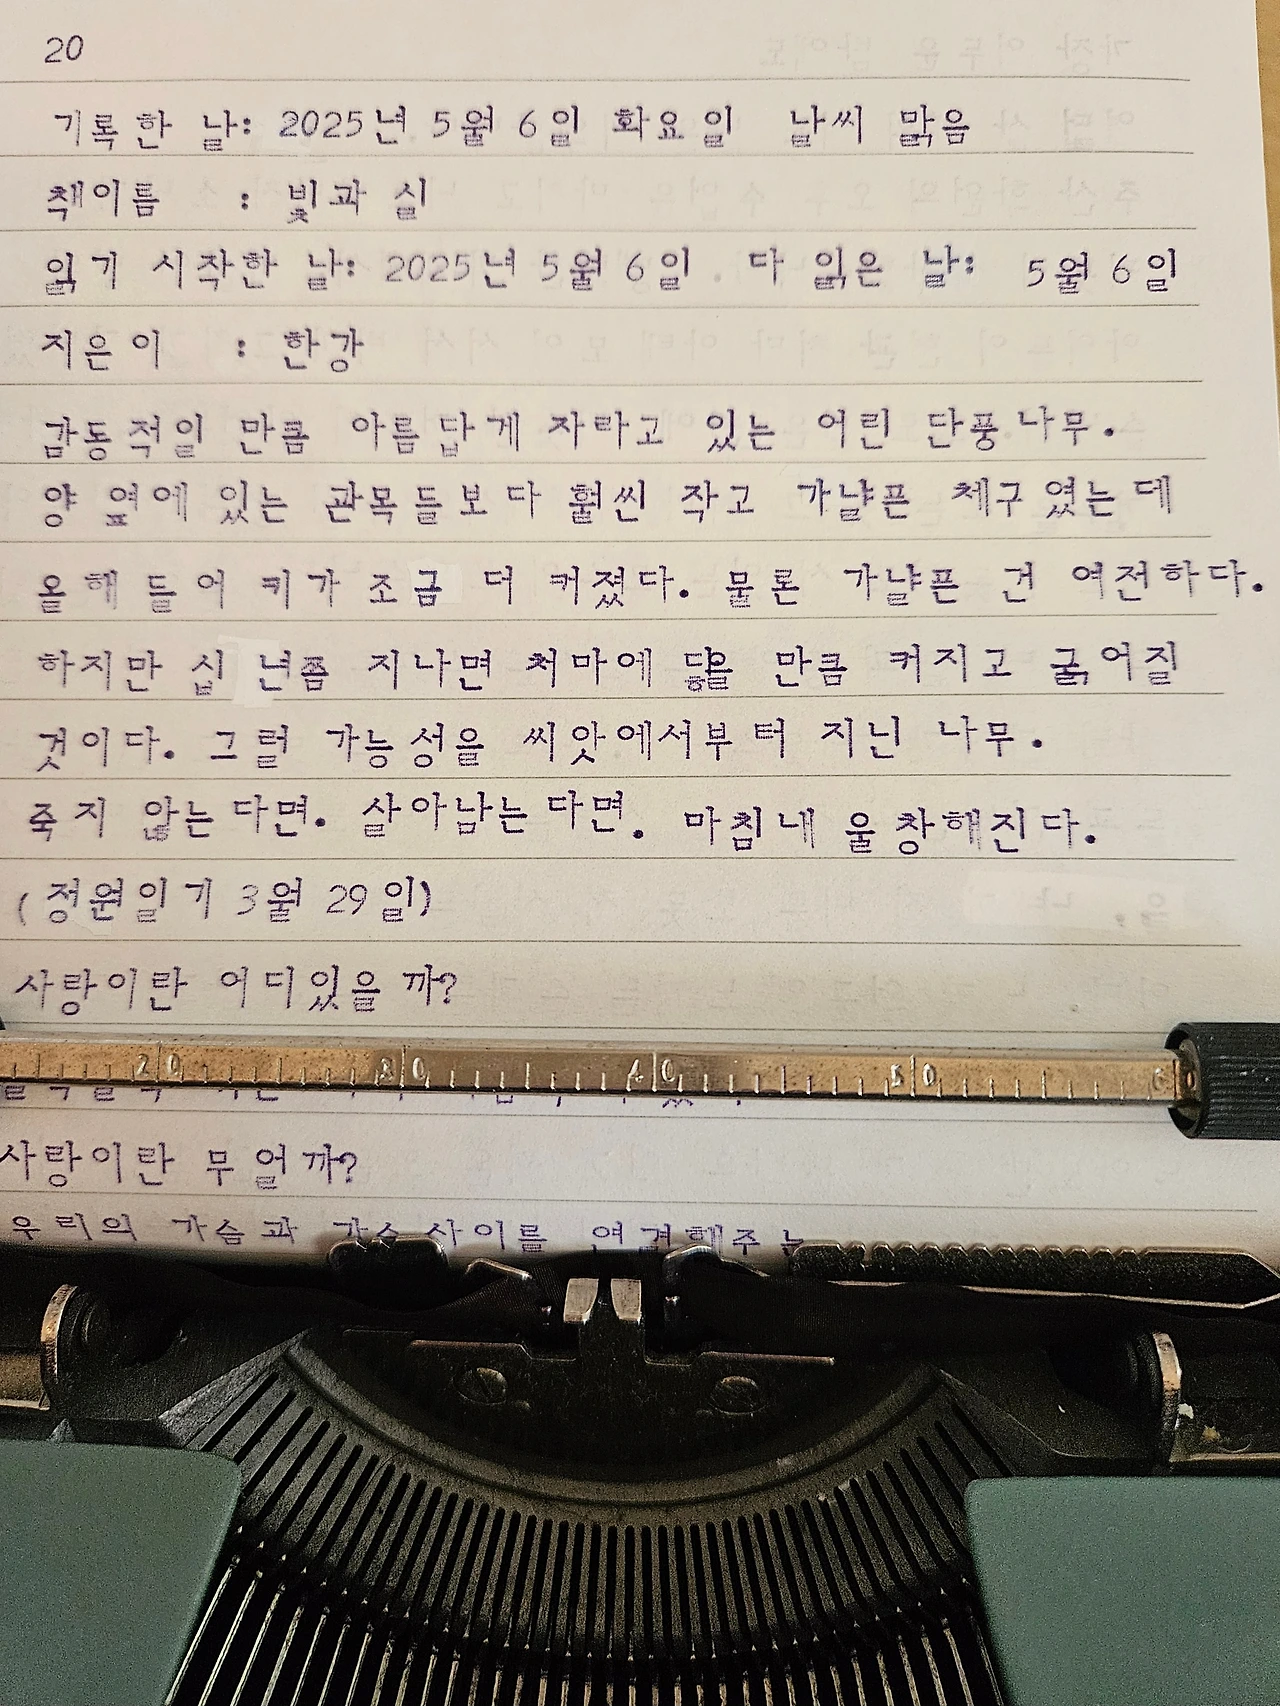 20
기록한 날: 2025년 5월 6일 화요일 날씨 맑음
책이름 : 빛과 실
읽기 시작한 날: 2025년 5월 6일. 다 읽은 날: 5월 6일
지은이 : 한강
감동적일 만큼 아름답게 자라고 있는 어린 단풍나무.
양 옆에 있는 관목들보다 훨씬 작고 가냘픈 체구였는데
올해 들어 키가 조금 더 커졌다. 물론 가냘픈 건 여전하다.
하지만 십 년쯤 지나면 처마에 닿을 만큼 커지고 굵어질
것이다. 그럴 가능성을 씨앗에서부터 지닌 나무.
죽지 않는다면. 살아남는다면. 마침내 울창해진다.
(정원일기 3월 29일)
사랑이란 어디있을까?
20 30 40 50 6
사랑이란 무얼까?
우리의 가슴과 가슴사이를 연결해주는